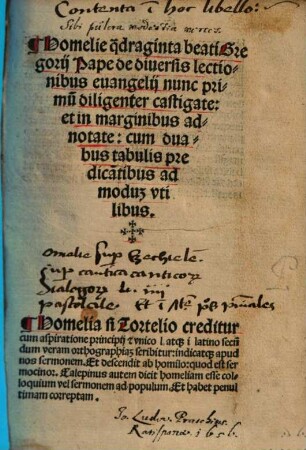 Contenta i hoc libello:
Sibi
¶Homelie q̃draginta beati Gre
gorij Pape de diuersis lectio-
nibus euangelij nunc pri-
mũ diligenter castigate:
et in marginibus ad-
notate: cum dua-
bus tabulis pre
dicãtibus ad
moduȝ vti
libus.
Omelie sup Ezechielẽ
Sup cantica canticoꝝ
Dialogoꝝ li. iiij
Pastorale. Et i
¶Homelia si Tortelio creditur
cum aspiratione principij ⁊ vnico l. atqȝ i latino secũ
dum veram orthographiaȝ scribitur: indicatqȝ apud
nos sermonem. Et descendit ab homilo: quod est ser
mocinor. Calepinus autem dicit homeliam esse col-
loquium vel sermonem ad populum. Et habet penul
timam correptam.